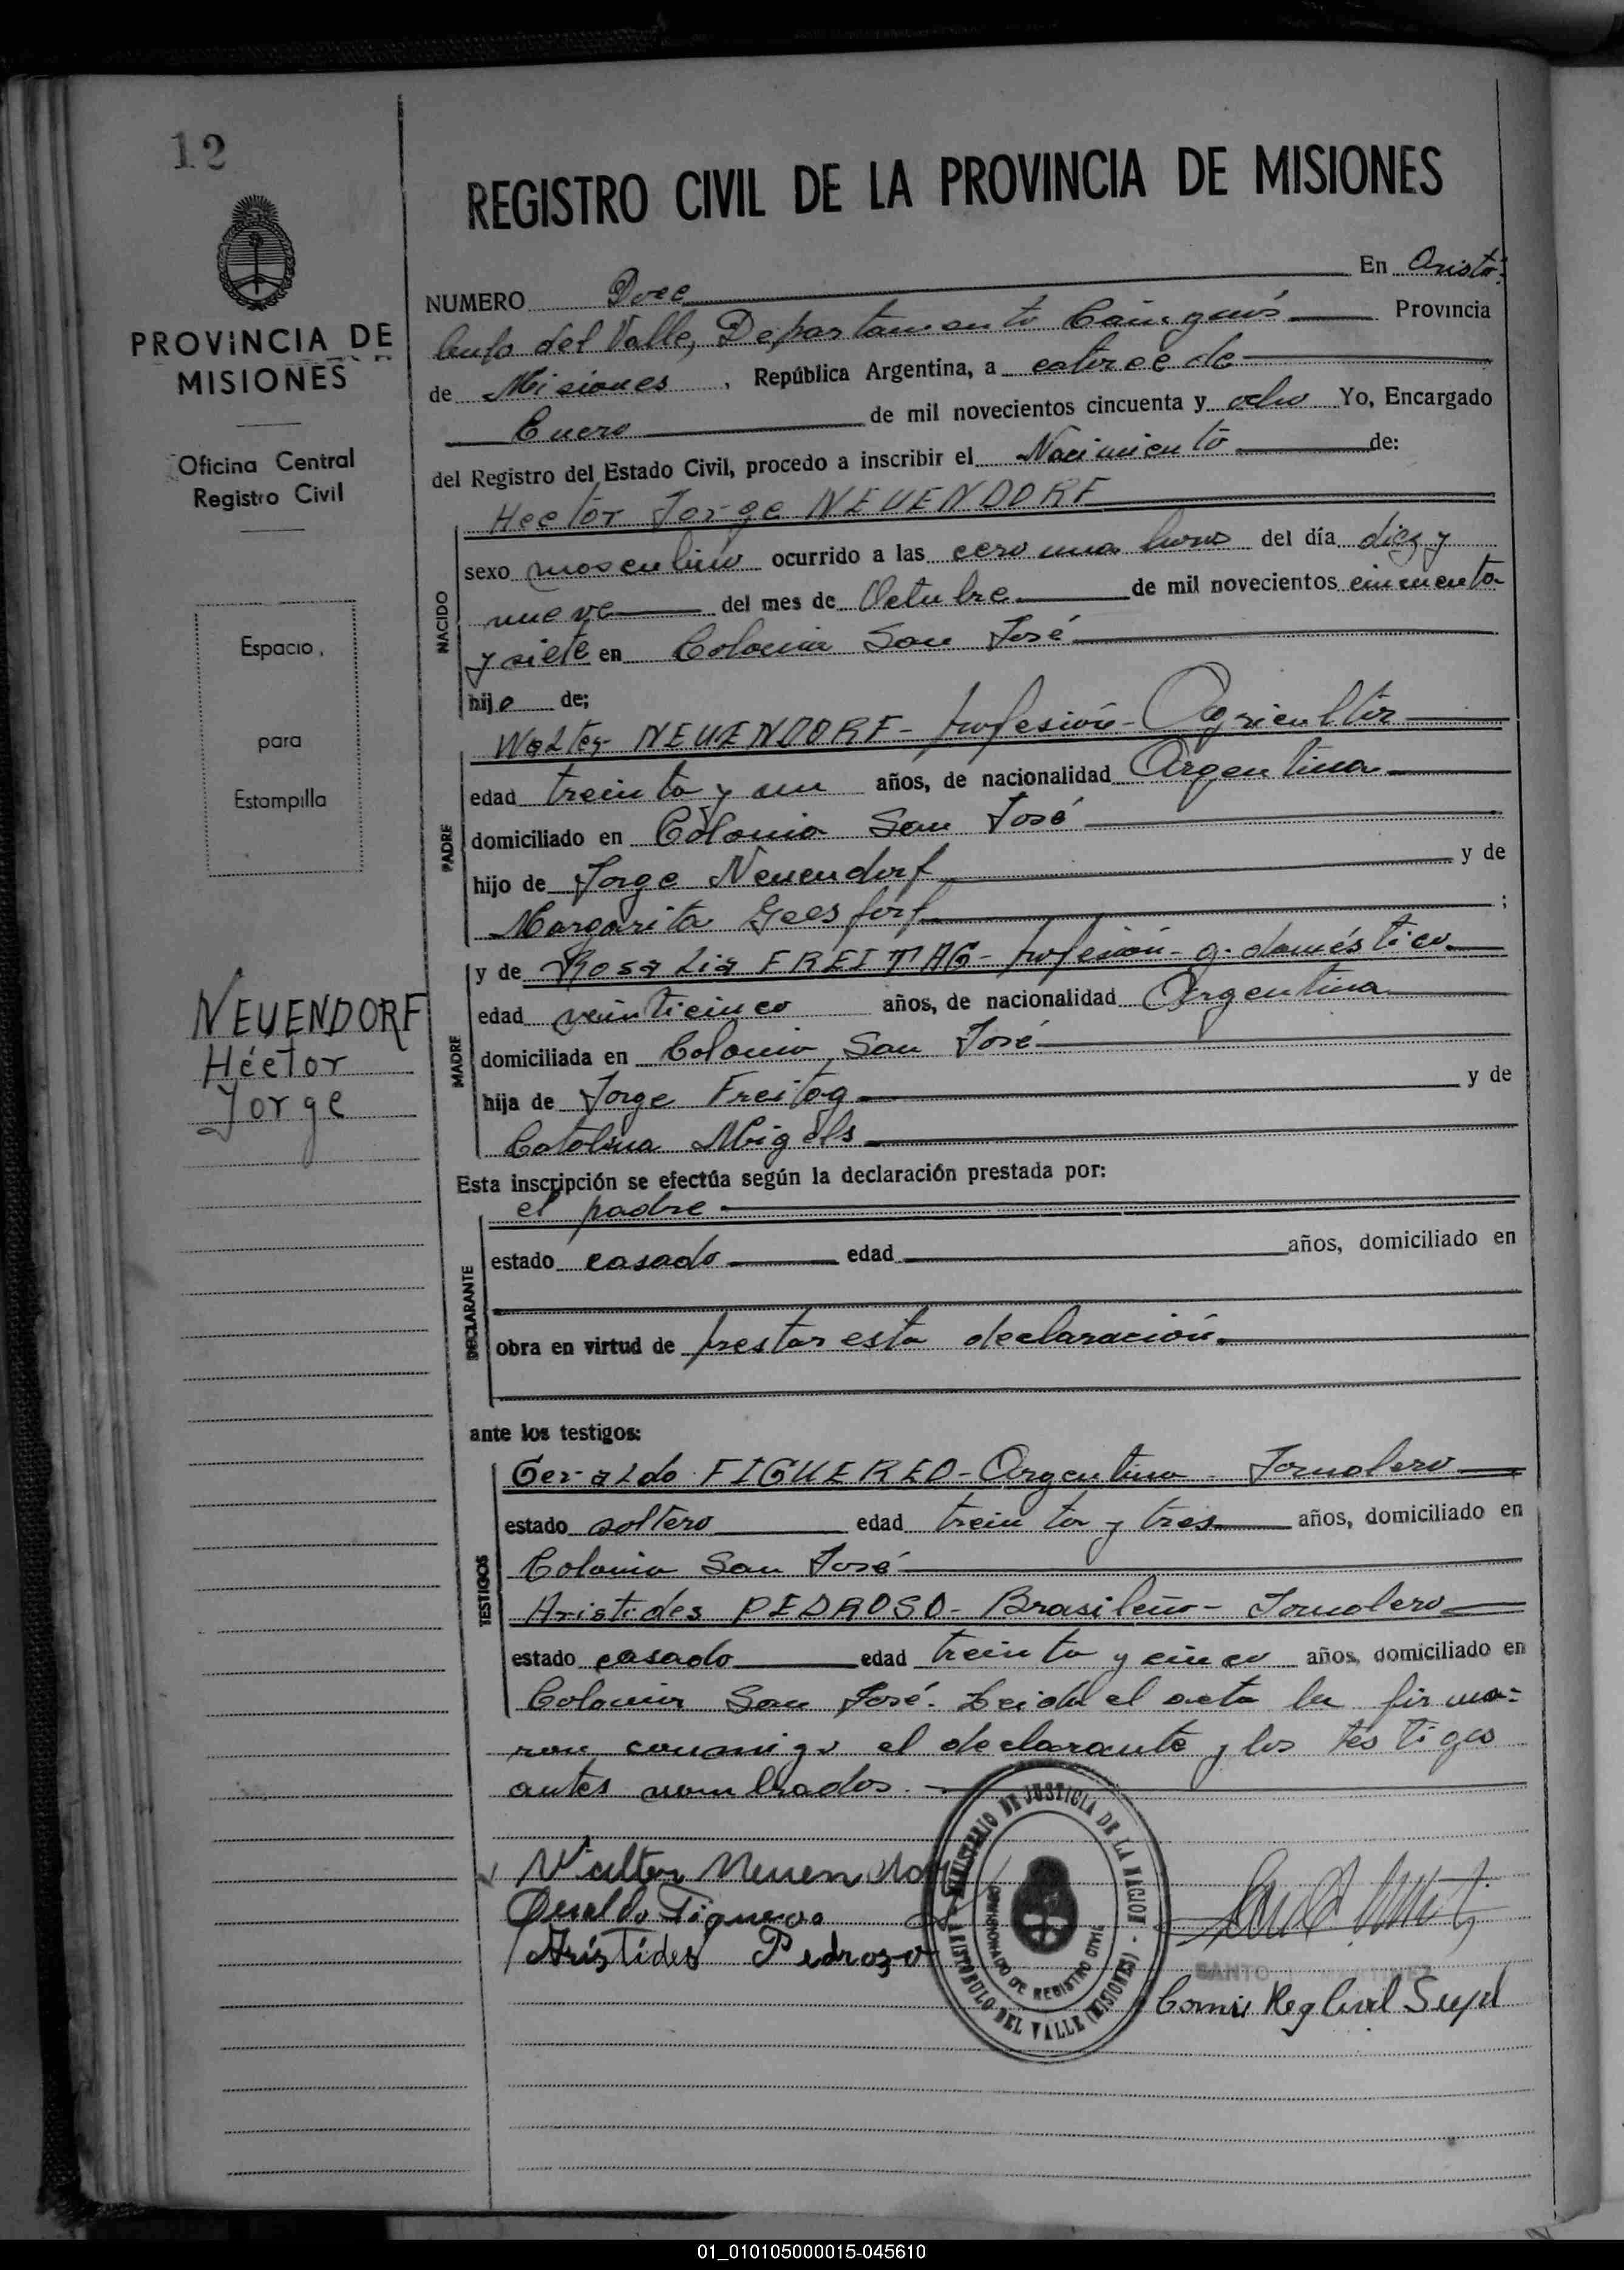 12
PROVINCIA DE
MISIONES
Oficina Central
Registro Civil
Espacio
para
Estampilla
NEUENDORF
Héctor
Jorge
REGISTRO CIVIL DE LA PROVINCIA DE MISIONES
NUMERO Doce En Aristó-
bulo del Valle, Departamento Cainguás Provincia
de Misiones, República Argentina, a catorce de
Enero de mil novecientos cincuenta y ocho Yo, Encargado
del Registro del Estado Civil, procedo a inscribir el Nacimiento de:
NACIDO
Hector Jorge NEUENDORF
sexo masculino ocurrido a las cero una horas del día diez y
nueve del mes de Octubre de mil novecientos cincuenta
y siete en Colonia San José
hijo de;
PADRE
Walter NEUENDORF - profesión - Agricultor
edad treinta y un años, de nacionalidad Argentina
domiciliado en Colonia San José
hijo de Jorge Neuendorf y de
Margarita ;
MADRE
y de Rosalia FREITAG - profesión - q. doméstico
edad veinticinco años, de nacionalidad Argentina
domiciliada en Colonia San José
hija de Jorge Freitag y de
Catalina Migels
Esta inscripción se efectúa según la declaración prestada por:
DECLARANTE
el padre
estado casado edad años, domiciliado en
obra en virtud de prestar esta declaración.
ante los testigos:
TESTIGOS
Geraldo FIGUEREO - Argentino - Jornalero
estado soltero edad treinta y tres años, domiciliado en
Colonia San José
Aristides PEDROSO - Brasileño - Jornalero
estado casado edad treinta y cinco años, domiciliado en
Colonia San José. Leida el acta la firma-
ron conmigo el declarante y los testigos
antes nombrados.
Walter Neuendorf
Geraldo Figueredo
Aristides Pedrozo
MINISTERIO DE JUSTICIA DE LA NACION - ARISTOBULO DEL VALLE (MISIONES)
COMISIONADO DE REGISTRO CIVIL
SANTO MARTINEZ
Comis Reg Civil Supl
01_010105000015-045610